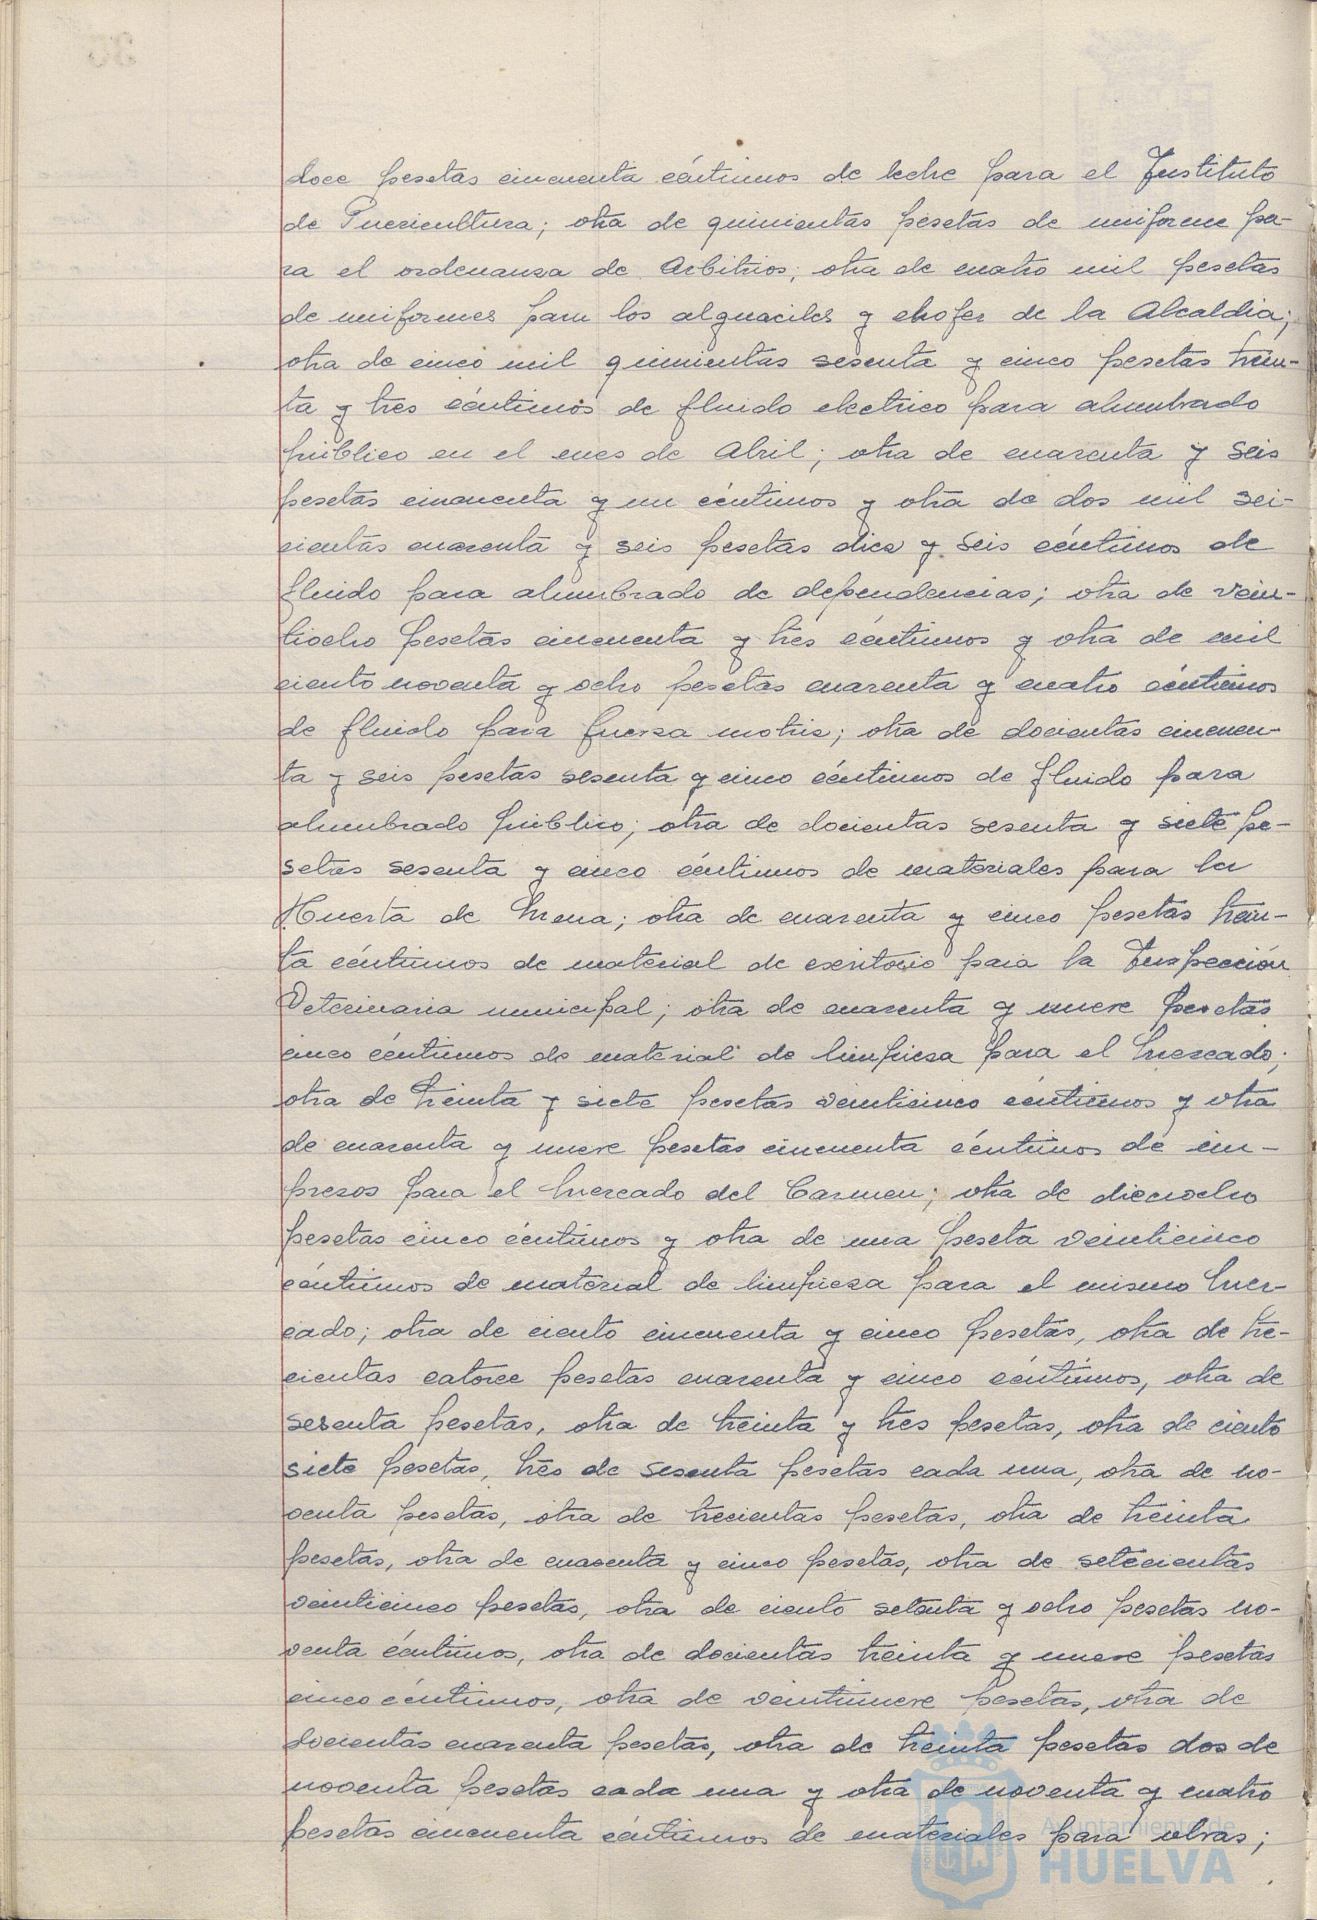 doce pesetas cincuenta céntimos de leche para el Instituto
de Puericultura; otra de quinientas pesetas de uniforme pa-
ra el ordenanza de Arbitrios; otra de cuatro mil pesetas
de uniformes para los alguaciles y chofer de la Alcaldia;
otra de cinco mil quinientas sesenta y cinco pesetas trein-
ta y tres céntimos de fluido electrico para alumbrado
público en el mes de Abril; otra de cuarenta y seis
pesetas cincuenta y un céntimos y otra de dos mil sei-
cientas cuarenta y seis pesetas diez y seis céntimos de
fluido para alumbrado de dependencias; otra de vein-
tiocho pesetas cincuenta y tres céntimos y otra de mil
ciento noventa y ocho pesetas cuarenta y cuatro céntimos
de fluido para fuerza motriz; otra de docientas cincuen-
ta y seis pesetas sesenta y cinco céntimos de fluido para
alumbrado público; otra de docientas sesenta y siete pe-
setas sesenta y cinco céntimos de materiales para la
Huerta de Mena; otra de cuarenta y cinco pesetas trein-
ta céntimos de material de escritorio para la Inspección
Veterinaria municipal; otra de cuarenta y nueve pesetas
cinco céntimos de material de limpieza para el Mercado;
otra de treinta y siete pesetas veinticinco céntimos y otra
de cuarenta y nueve pesetas cincuenta céntimos de im-
presos para el Mercado del Carmen; otra de dieciocho
pesetas cinco céntimos y otra de una peseta veinticinco
céntimos de material de limpieza para el mismo Mer-
cado; otra de ciento cincuenta y cinco pesetas, otra de tre-
cientas catorce pesetas cuarenta y cinco céntimos, otra de
sesenta pesetas, otra de treinta y tres pesetas, otra de ciento
siete pesetas, tres de sesenta pesetas cada una, otra de no-
venta pesetas, otra de trecientas pesetas, otra de treinta
pesetas, otra de cuarenta y cinco pesetas, otra de setecientas
veinticinco pesetas, otra de ciento setenta y ocho pesetas no-
venta céntimos, otra de docientas treinta y nueve pesetas
cinco céntimos, otra de veintinueve pesetas, otra de
docientas cuarenta pesetas, otra de treinta pesetas dos de
noventa pesetas cada una y otra de noventa y cuatro
pesetas cincuenta céntimos de materiales para obras;
Ayuntamiento de
HUELVA